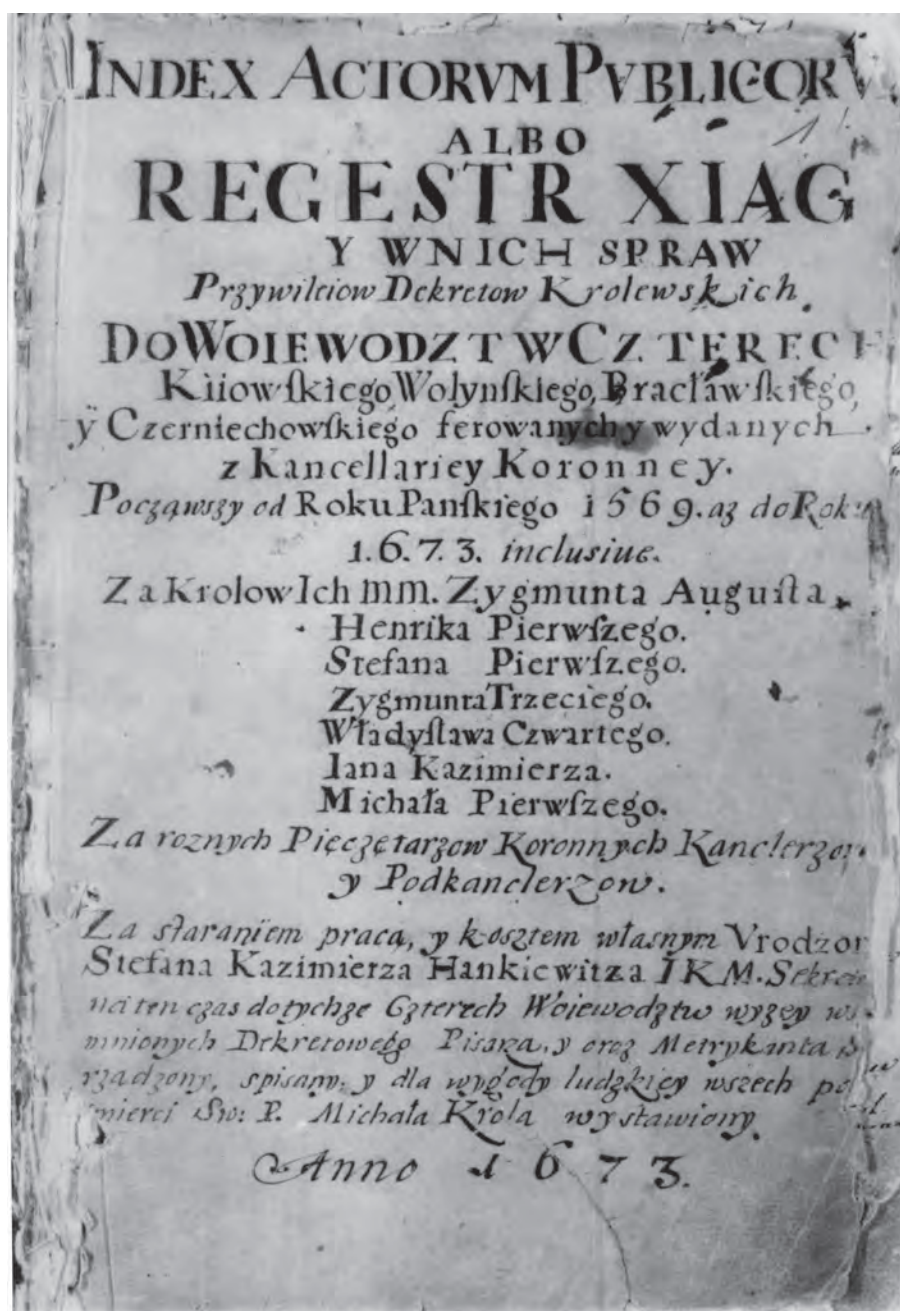 INDEX ACTORVM PVBLICORV
ALBO
REGESTR XIĄG
Y WNICH SPRAW
Przywileiow Dekretow Krolewskich
DO WOIEWODZTW CZTERECH
Kiiowſkiego, Wolynſkiego, Bracławſkiego,
ÿ Czerniechowſkiego ferowanych y wydanych
z Kancellariey Koronney.
Począwszy od Roku Panſkiego 1569. aż do Roku
1.6.7.3. incluſiue.
Za Krolow Ich MM. Zygmunta Auguſta,
Henrika Pierwſzego.
Stefana Pierwſzego.
Zygmunta Trzeciego.
Władyſlawa Czwartego.
Iana Kazimierza.
Michała Pierwſzego.
Za roznych Pieczętarzow Koronnych Kanclerzow
y Podkanclerzow.
Za staraniem pracą, y kosztem własnym Vrodzon
Stefana Kazimierza Hankiewitza I K M. Sekret
na ten czas do tychże Czterech Woiewodztw wyżey
mnionych Dekretowego Pisarza, y oraz Metrykanta
rządzony, spisany, y dla wygody ludzkiey wszech po
śmierci Sw: P. Michała Krola wystawiony
Anno 1673.